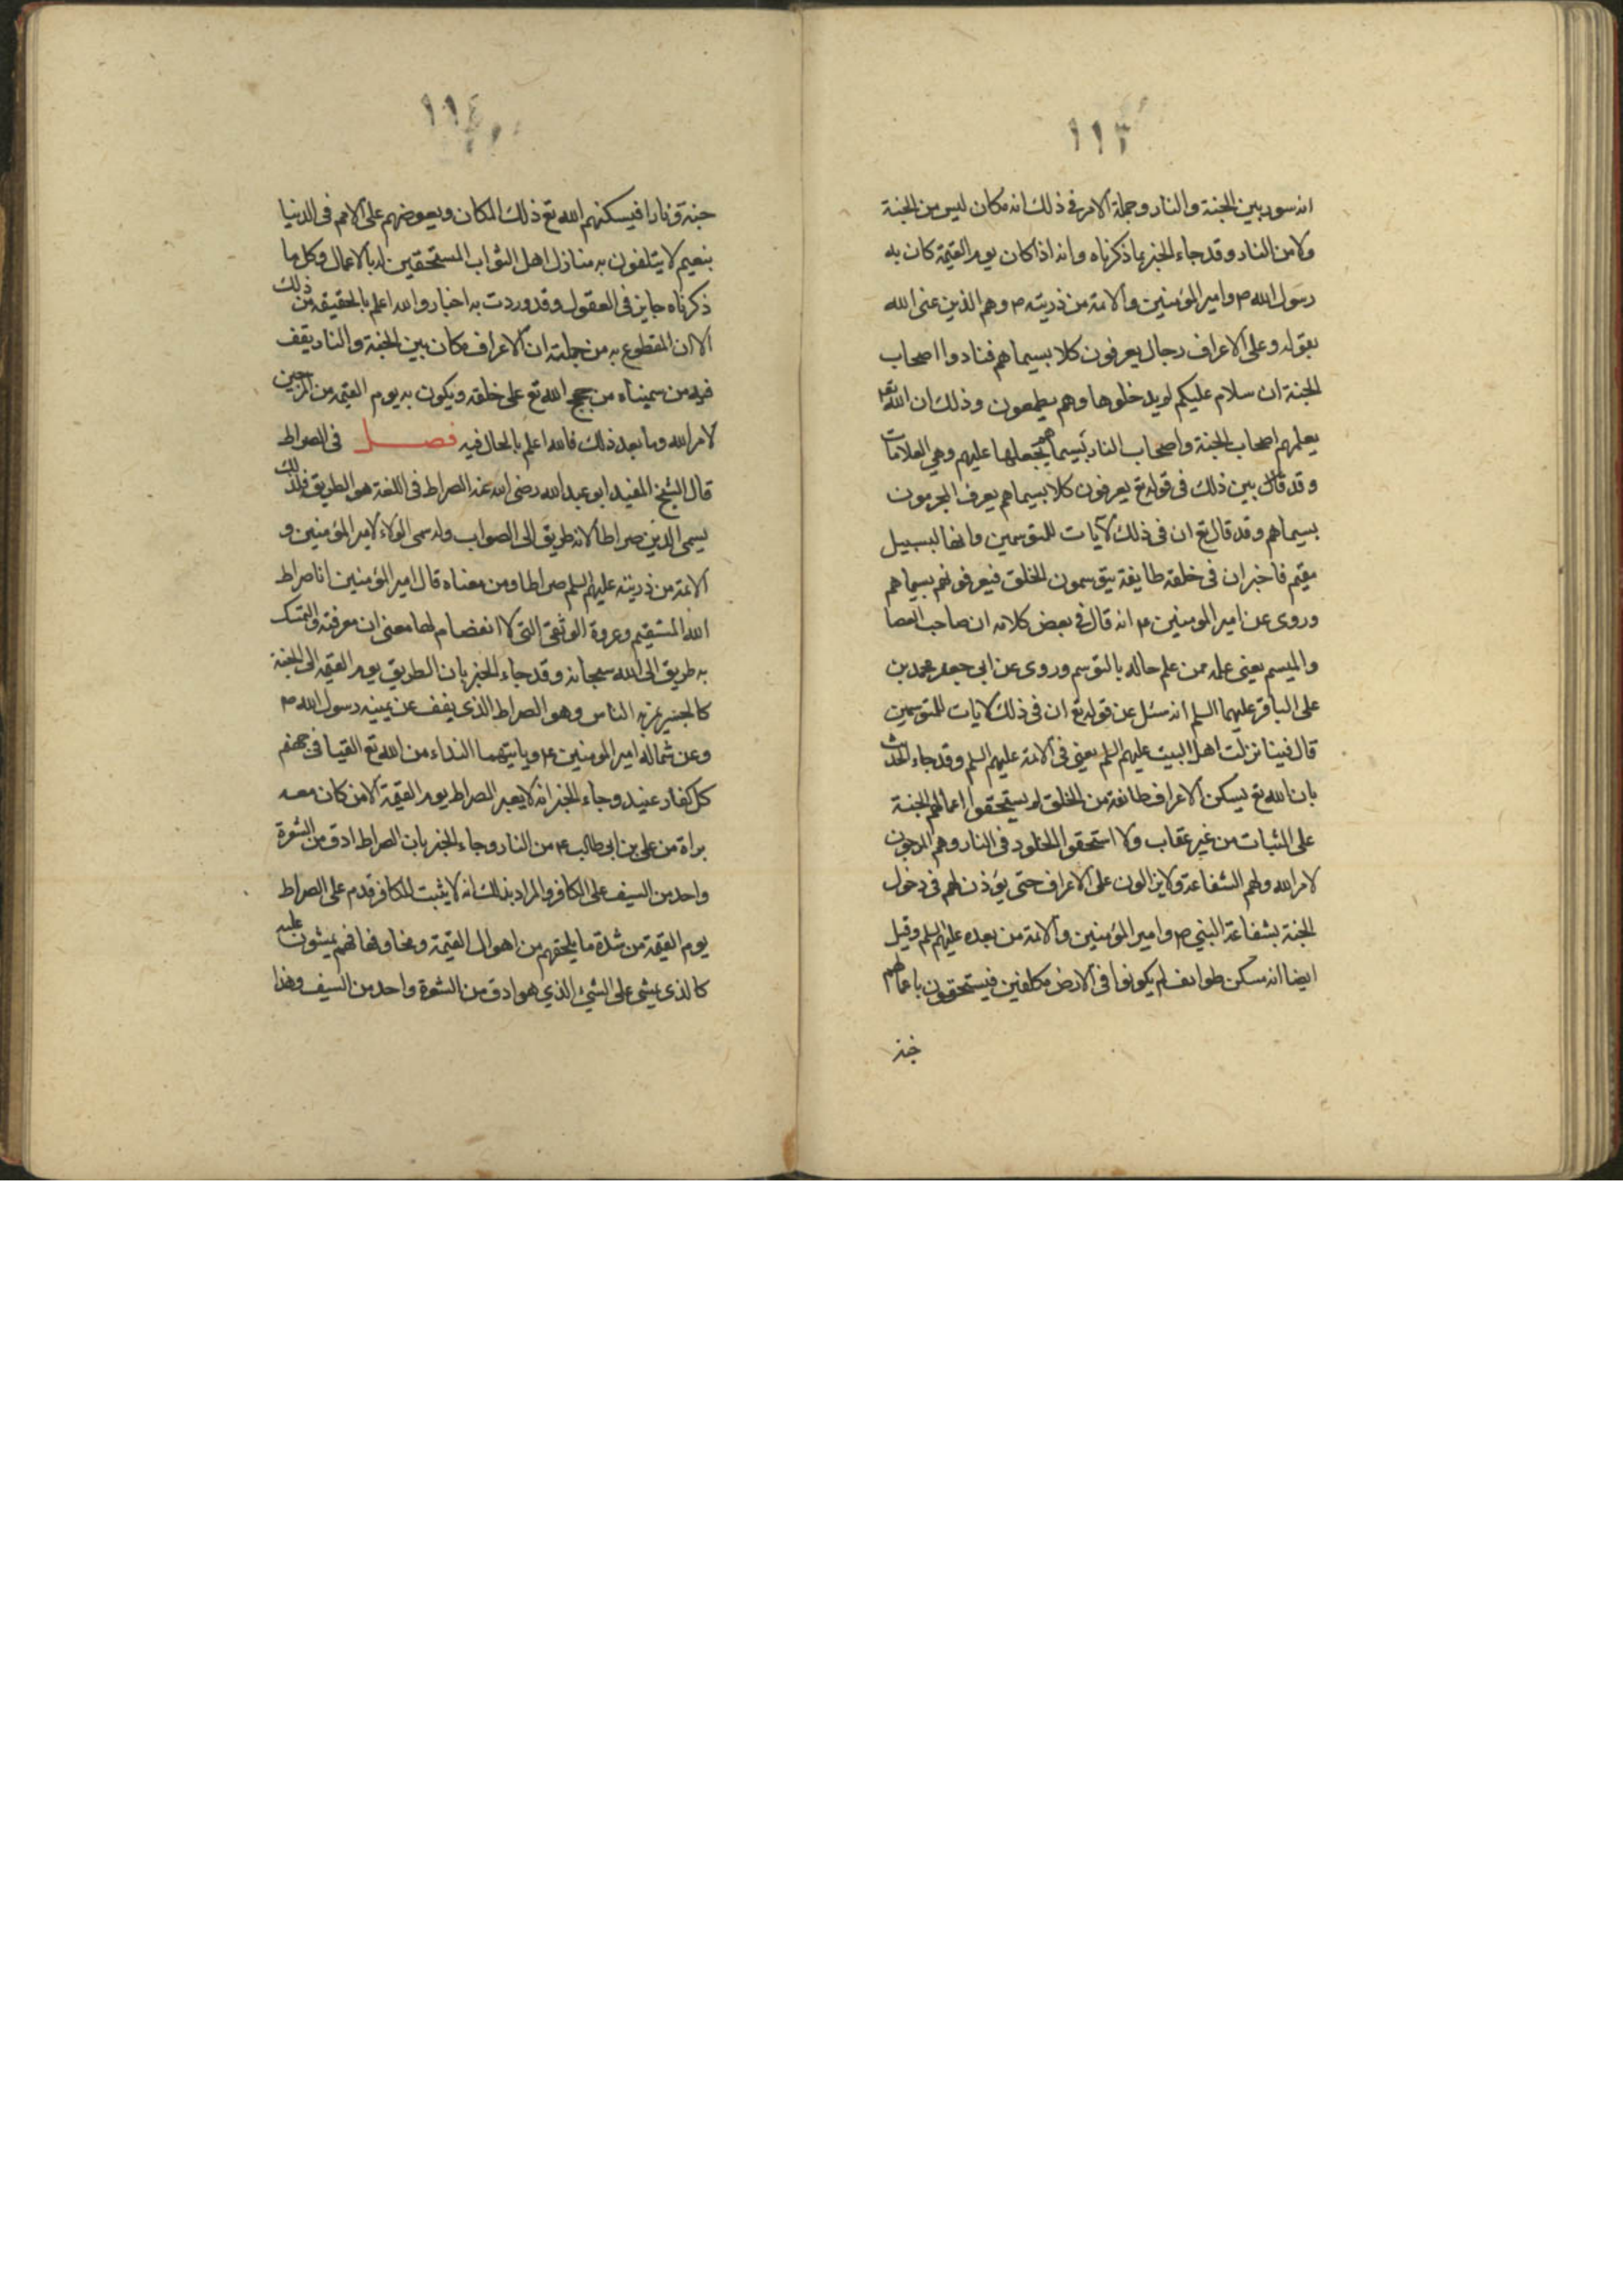 ١١٣
انه سور بين الجنة والنار وجملة الامر في ذلك انه مكان ليس من الجنة
ولا من النار وقد جاء الخبر بما ذكرناه وانه اذا كان يوم القيمة كان به
رسول الله ص وامير المؤمنين والائمة من ذريته ص وهم الذين عنى الله
بقوله وعلى الاعراف رجال يعرفون كلا بسيماهم فنادوا اصحاب
الجنة ان سلام عليكم لم يدخلوها وهم يطمعون وذلك ان الله تعا
يعلمهم اصحاب الجنة واصحاب النار بسيماهم يجعلها عليهم وهي العلامات
وقد بين ذلك في قوله تع يعرفون كلا بسيماهم يعرف المجرمون
بسيماهم وقد قال تع ان في ذلك لآيات للمتوسمين وانها لبسبيل
مقيم فاخبر ان في خلقه طايفة يتوسمون الخلق فيعرفونهم بسيماهم
وروى عن امير المومنين ع انه قال في بعض كلامه ان صاحب العصا
والميسم يعني علمه ممن علم حاله بالتوسم وروى عن ابي جعفر محمد بن
على الباقر عليهما السلم انه سئل عن قوله تع ان في ذلك لايات للمتوسمين
قال فينا نزلت اهل البيت عليهم السلم يعني في الائمة عليهم السلم وقد جاء الحديث
بان الله تع يسكن الاعراف طائفة من الخلق لم يستحقوا اعمالهم الجنة
على الثبات من غير عقاب ولا استحقوا الخلود في النار وهم المرجون
لامر الله ولهم الشفاعة ولا يزالون على الاعراف حتى يؤذن لهم في دخول
الجنة بشفاعة النبي ص وامير المؤمنين والائمة من بعده عليهم السلم وقيل
ايضا انه مسكن طوايف لم يكونوا في الارض مكلفين فيستحقون باعمالهم
جنة
١١٤
جنة ونارا فيسكنهم الله تع ذلك المكان ويعوضهم على الامم في الدنيا
بنعيم لا يتلفون به منازل اهل الثواب المستحقين له بالاعمال وكل ما
ذكرناه جايز في العقول وقد وردت به اخبار والله اعلم بالحقيقة من ذلك
الا ان المقطوع به من جملته ان الاعراف مكان بين الجنة والنار يقف
فيه من سميناه من حجج الله تع على خلقه ويكون به يوم القيمة من المرجين
لامر الله وما بعد ذلك فالله اعلم بالحال فيه فصل في الصراط
قال الشيخ المفيد ابو عبد الله رضى الله عنه الصراط في اللغة هو الطريق فلذلك
يسمى الدين صراطا لانه طريق الى الصواب وله سمى الولاء لامير المؤمنين و
الائمة من ذريته عليهم السلم صراطا ومن معناه قال امير المؤمنين انا صراط
الله المستقيم وعروة الوثقى التى لا انفصام لها معنى ان معرفته والتمسك
به طريق الى الله سبحانه وقد جاء الخبر بان الطريق يوم القيمة الى الجنة
كالجسر يمر به الناس وهو الصراط الذى يقف عن يمينه رسول الله ص
وعن شماله امير المومنين ع وياتيهما النداء من الله تع القيا في جهنم
كل كفار عنيد وجاء الخبر انه لا يعبر الصراط يوم القيمة الا من كان معه
براة من على بن ابي طالب ع من النار وجاء الخبر بان الصراط ادق من الشعرة
واحد من السيف على الكافر والمراد بذلك انه لا يثبت للكافر قدم على الصراط
يوم القيمة من شدة ما يلحقهم من اهوال القيمة ومخاوفها فهم يمشون عليه
كالذى يمشى على الشىء الذي هو ادق من الشعرة واحد من السيف وهذا